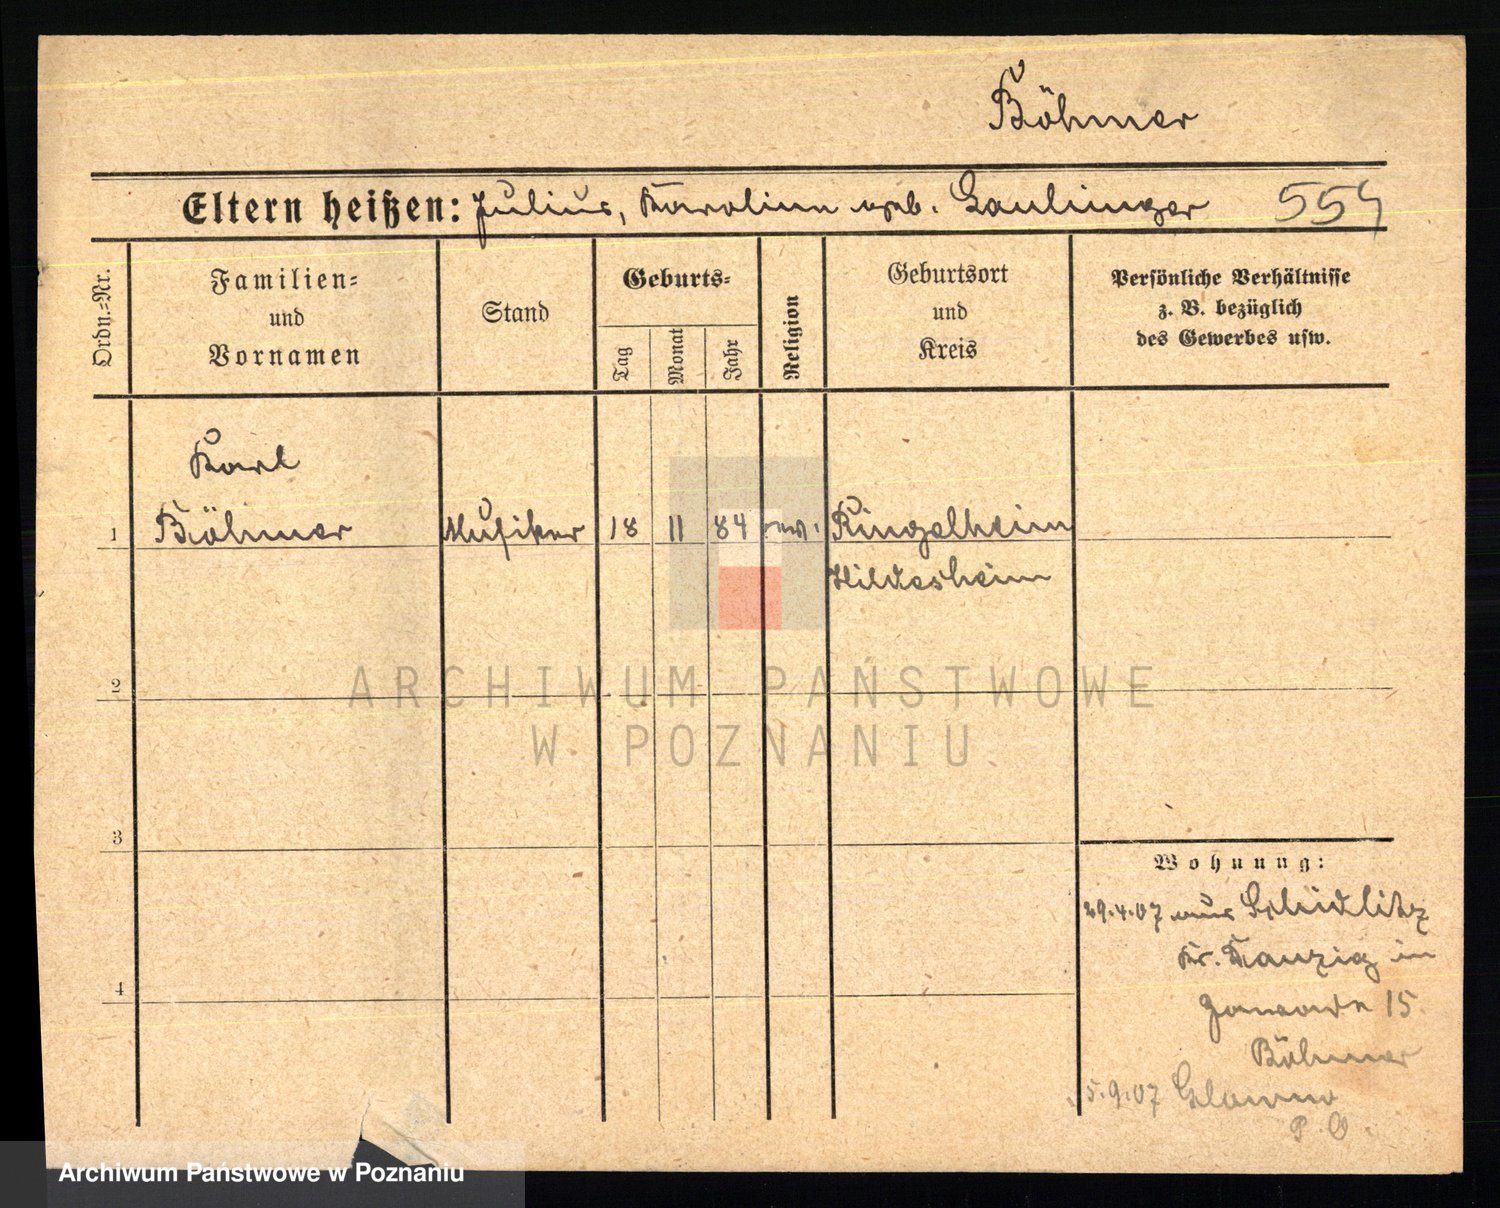 Böhmer
Eltern heißen: Julius, Karoline geb. 554
Ordn.-Nr.
Familien-
und
Vornamen
Stand
Geburts-
Tag
Monat
Jahr
Religion
Geburtsort
und
Kreis
Persönliche Verhältnisse
z. B. bezüglich
des Gewerbes usw.
Karl
1 Böhmer Musiker 18 11 84 ev. Ringelheim
Hildesheim
ARCHIWUM PAŃSTWOWE
W POZNANIU
2
3
4
Wohnung:
29.4.07 aus Schidlitz
Kr. Danzig in
15
Böhmer
5.9.07 Glowno
P. O.
Archiwum Państwowe w Poznaniu